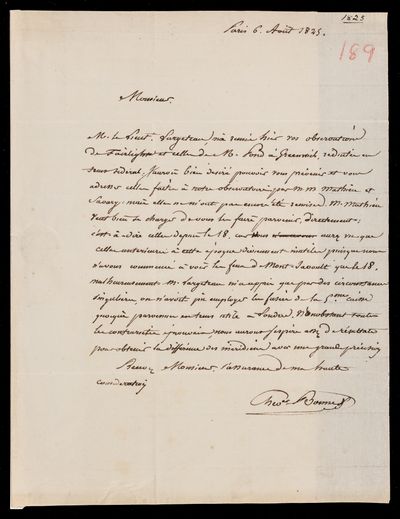 1825
189
Paris 6. Août 1825.
Monsieur.
M. le Lieut. Largeteau m'a remis hier vos observations
de Fairlight et celles de M. Pond à Greenwich, réduites en
tems sidéral. J'aurois bien desiré pouvoir vous prévenir et vous
adresser celles faites à notre observatoire par M M Mathieu et
Savary: mais elles ne m'ont pas encore été remises. M. Mathieu
veut bien se charger de vous les faire parvenir, directement;
c'est à dire celles depuis le 18, vu que
celles antérieures à cette époque deviennent inutiles puisque nous
n'avons commencé à voir les feux de Mont Javoult que le 18.
malheureusement M. Largeteau m'a appris que par des circonstances
singulières, on n'avoit pu employer les fusées de la 5eme caisse
quoique parvenues en tems utile à Londres. Nonobstant toutes
les contrariétés éprouvées, nous aurons j'espère assez de résultats
pour obtenir la différence des méridiens avec une grande précision
Recevez Monsieur l'assurance de ma haute
considération
Chev. Bonne